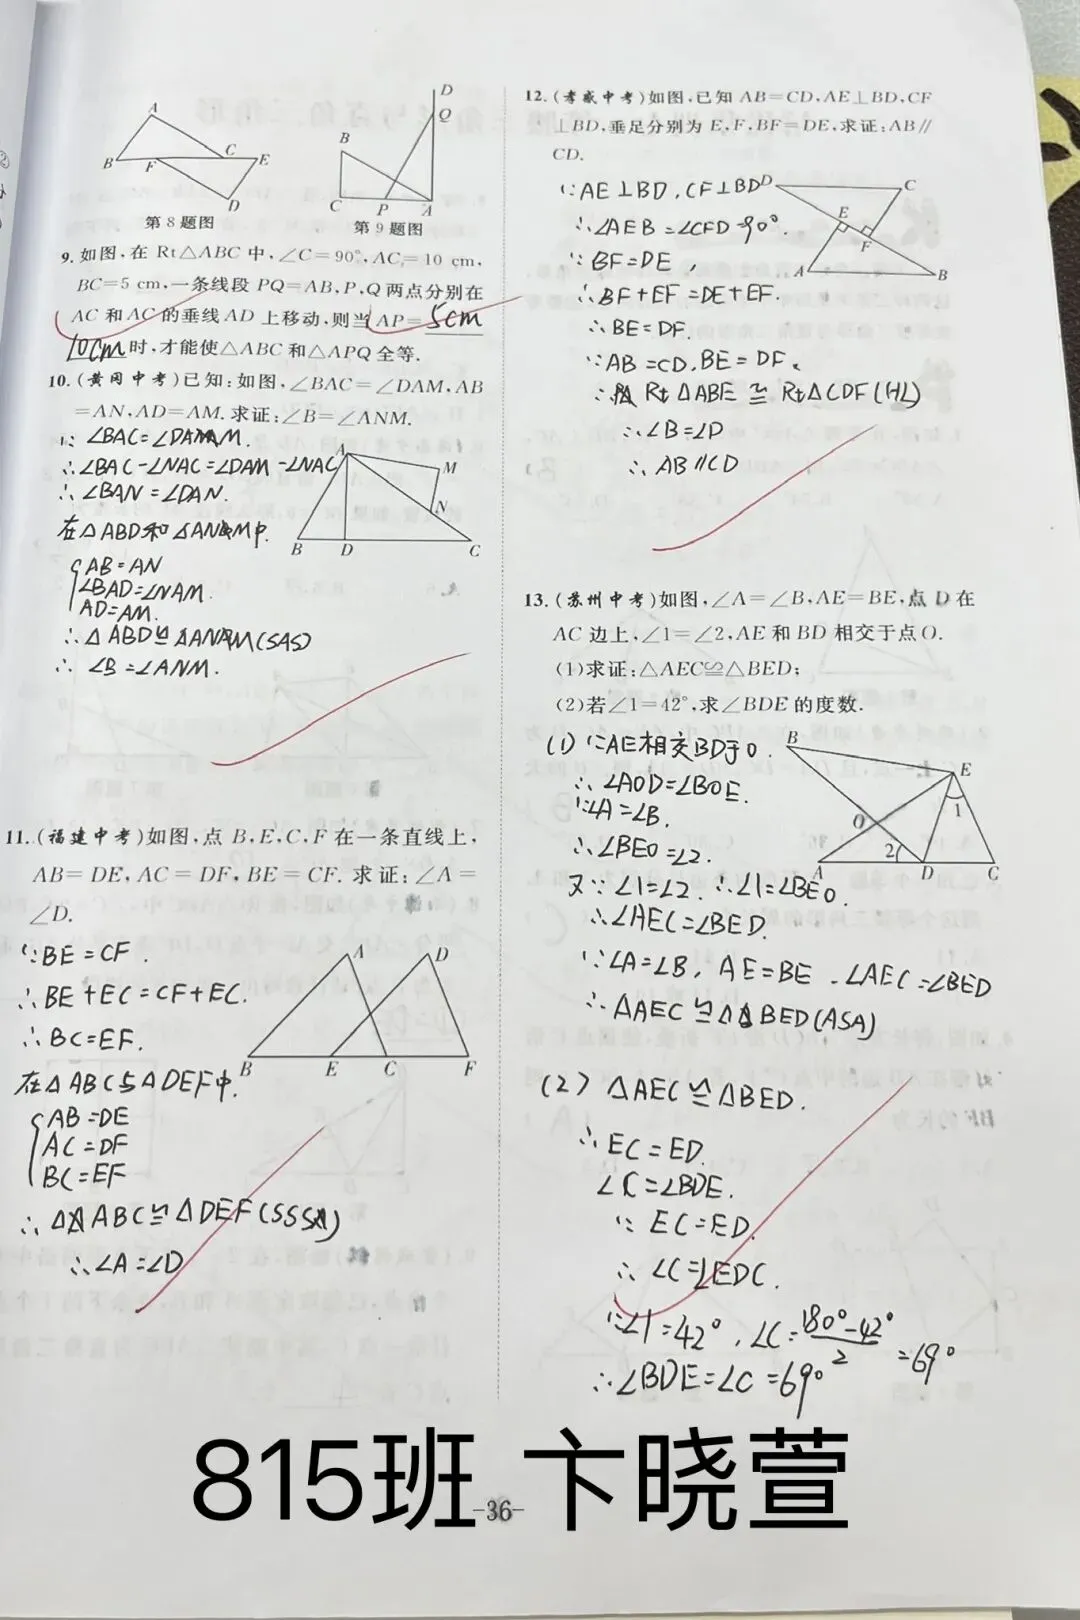 A
B
F
C
E
D
第8题图
D
Q
B
C
P
A
第9题图
9.如图,在Rt△ABC中,∠C=90°,AC=10 cm,
BC=5 cm,一条线段PQ=AB,P,Q两点分别在
AC和AC的垂线AD上移动,则当AP=5cm
10cm时,才能使△ABC和△APQ全等.
10.(黄冈中考)已知:如图,∠BAC=∠DAM,AB
=AN,AD=AM.求证:∠B=∠ANM.
∵∠BAC=∠DAM.
∴∠BAC-∠NAC=∠DAM-∠NAC
∴∠BAN=∠DAN.
在△ABD和△ANM中.
AB=AN
∠BAD=∠NAM.
AD=AM.
∴△ABD≌△ANM(SAS)
∴∠B=∠ANM.
A
M
N
B
D
C
11.(福建中考)如图,点B,E,C,F在一条直线上,
AB=DE,AC=DF,BE=CF.求证:∠A=
∠D.
∵BE=CF.
∴BE+EC=CF+EC.
∴BC=EF.
在△ABC与△DEF中.
AB=DE
AC=DF
BC=EF
∴△ABC≌△DEF(SSS)
∴∠A=∠D
A
D
B
E
C
F
12.(孝感中考)如图,已知AB=CD,AE⊥BD,CF
⊥BD,垂足分别为E,F,BF=DE,求证:AB∥
CD.
∵AE⊥BD.CF⊥BD
∴∠AEB=∠CFD=90°.
∵BF=DE,
∴BF+EF=DE+EF.
∴BE=DF.
∵AB=CD,BE=DF.
∴Rt△ABE≌Rt△CDF(HL)
∴∠B=∠D
∴AB∥CD
D
C
E
F
A
B
13.(苏州中考)如图,∠A=∠B,AE=BE,点D在
AC边上,∠1=∠2,AE和BD相交于点O.
(1)求证:△AEC≌△BED;
(2)若∠1=42°,求∠BDE的度数.
(1)∵AE相交BD于O.
∴∠AOD=∠BOE.
∵∠A=∠B.
∴∠BEO=∠2.
又∵∠1=∠2.∴∠1=∠BEO.
∴∠AEC=∠BED.
∵∠A=∠B,AE=BE.∠AEC=∠BED
∴△AEC≌△BED(ASA)
B
E
1
O
2
A
D
C
(2)△AEC≌△BED.
∴EC=ED.
∠C=∠BDE.
∵EC=ED.
∴∠C=∠EDC.
∵∠1=42°,∠C=180°-42°/2=69°
∴∠BDE=∠C=69°
815班 卞晓萱
-36-